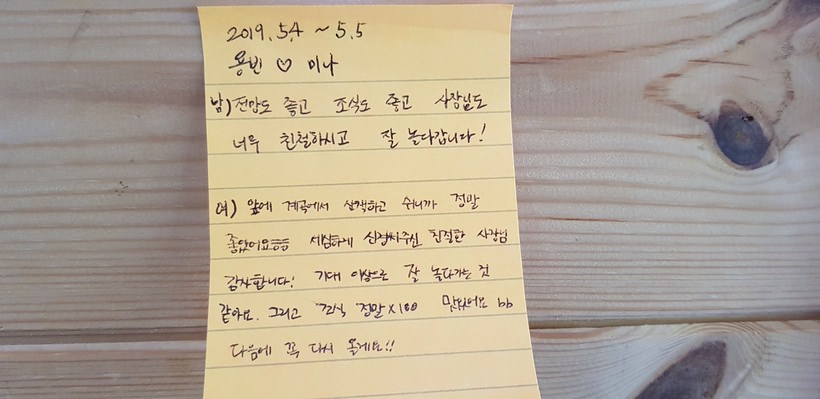 2019. 5.4 ~ 5.5
용빈 ♡ 미나
남) 전망도 좋고 조식도 좋고 사장님도
너무 친철하시고 잘 놀다갑니다!
여) 앞에 계곡에서 산책하고 쉬니까 정말
좋았어요ㅎㅎ 세심하게 신경써주신 친절한 사장님
감사합니다! 기대 이상으로 잘 놀다가는 것
같아요. 그리고 조식 정말×100 맛있어요 bb
다음에 꼭 다시 올게요!!